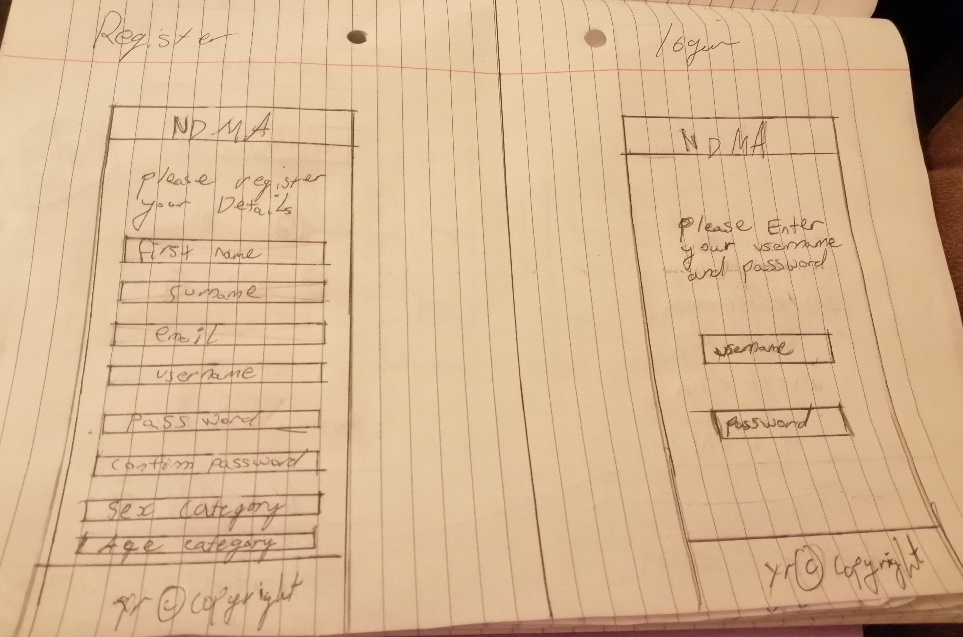 Register
NDMA
please register
your Details
first name
surname
email
username
Password
confirm password
Sex category
Age category
yr © copyright
login
NDMA
please Enter
your username
and password
username
password
yr © copyright